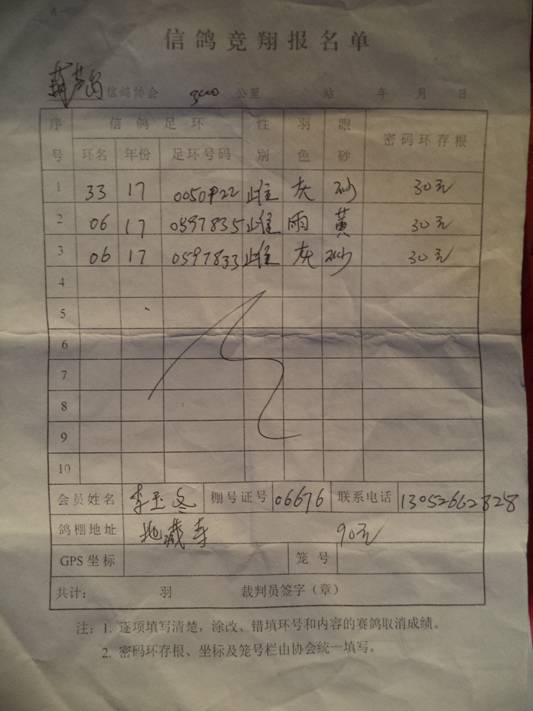 信鸽竞翔报名单
葫芦岛信鸽协会 300 公里 站 年 月 日
序号 信鸽足环 性别 羽色 眼砂 密码环存根
环名 年份 足环号码
1 33 17 雌 灰 砂 30元
2 06 17 0597835 雌 雨 黄 30元
3 06 17 0597833 雌 灰 砂 30元
4
5
6
7
8
9
10
会员姓名 李玉冬 棚号证号 06676 联系电话 13052662828
鸽棚地址 地藏寺 90元
GPS 坐标 笼号
共计: 羽 裁判员签字（章）
注：1. 逐项填写清楚，涂改、错填环号和内容的赛鸽取消成绩。
2. 密码环存根、坐标及笼号栏由协会统一填写。